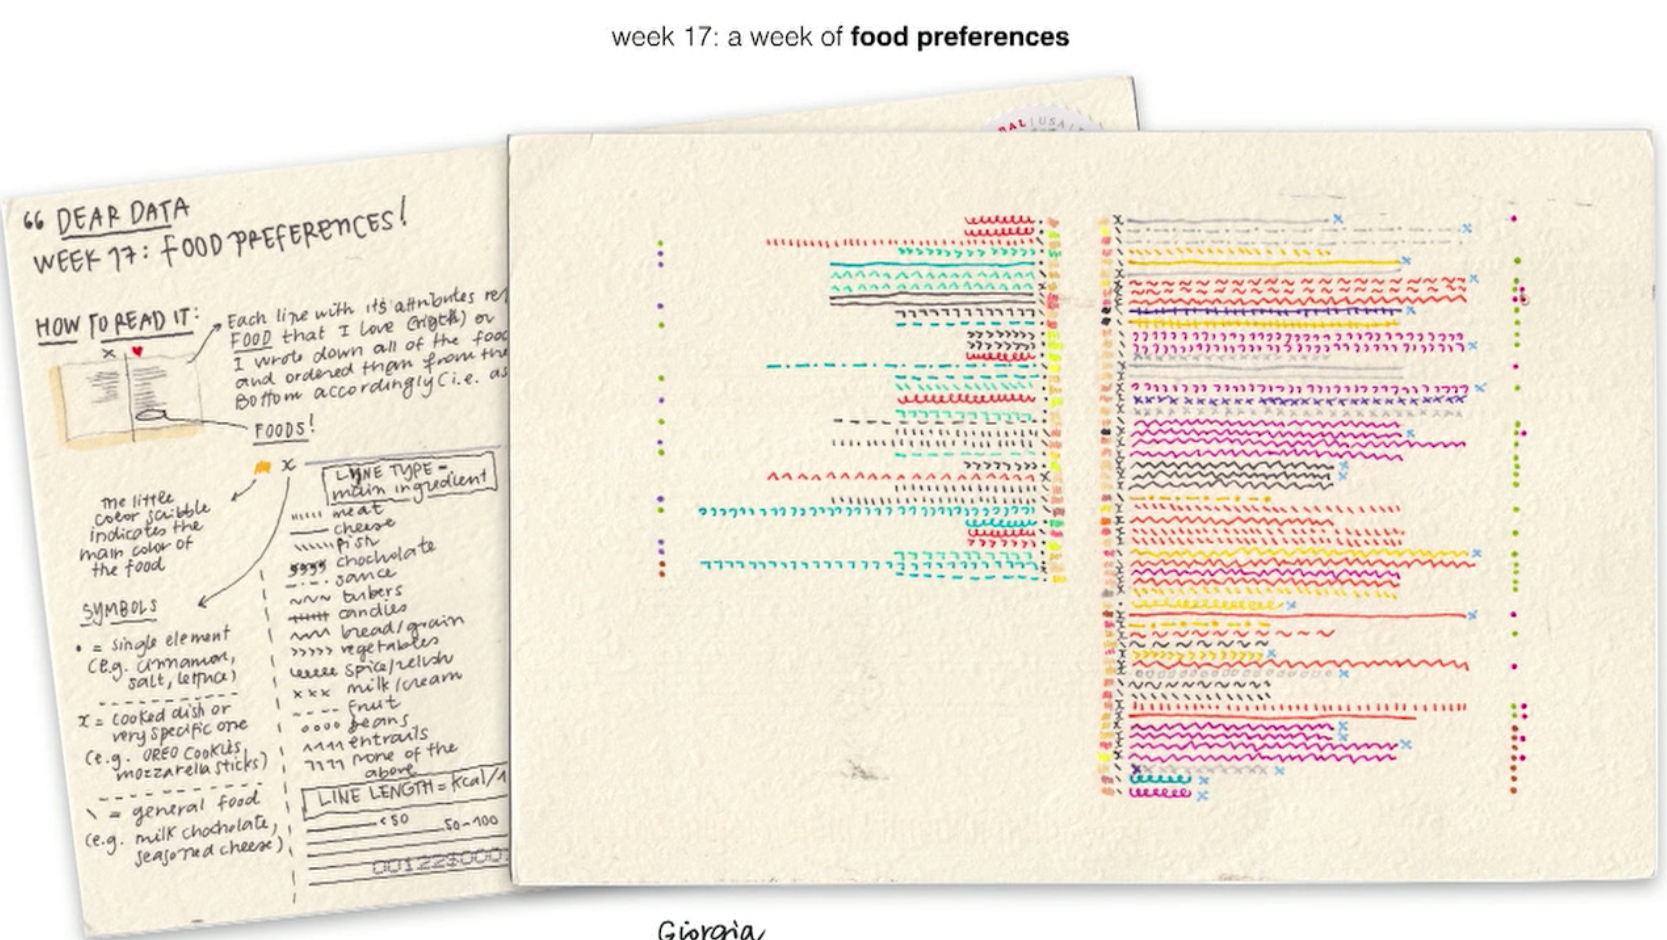 week 17: a week of food preferences
RAL | USA /
“ DEAR DATA
WEEK 17: FOOD PREFERENCES!
HOW TO READ IT:
Each line with its attributes
FOOD that I love (rigth) or
I wrote down all of the
and ordered them from the
Bottom accordingly (i.e. as
x
FOODS!
x
the little
color scribble
indicates the
main color of
the food
LINE TYPE =
main ingredient
meat
cheese
fish
chocholate
sauce
tubers
candies
bread/grain
vegetables
spice/relish
xxx milk/cream
fruit
beans
entrails
none of the
above
SYMBOLS
• = single element
(e.g. cinnamon,
salt, lettuce)
x = cooked dish or
very specific one
(e.g. OREO COOKIES
mozzarella sticks)
\ = general food
(e.g. milk chocholate,
seasoned cheese)
LINE LENGTH = Kcal/1
<50
50-100
Giorgia